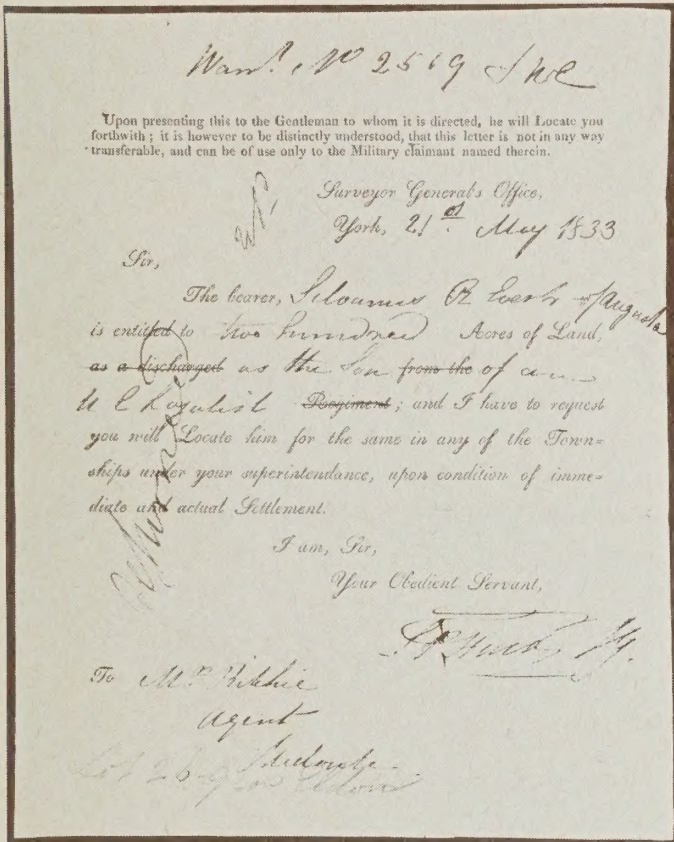 Warrt. No 2519
Upon presenting this to the Gentleman to whom it is directed, he will Locate you
forthwith; it is however to be distinctly understood, that this letter is not in any way
transferable, and can be of use only to the Military claimant named therein.
Surveyor General's Office,
York, 21st. May 1833
Sir,
The bearer, of Augusta
is entitled to two hundred Acres of Land,
as a discharged as the Son from the of a
U E Loyalist Regiment; and I have to request
you will Locate him for the same in any of the Town=
ships under your superintendance, upon condition of imme=
diate and actual Settlement.
I am, Sir,
Your Obedient Servant,
To Mr. Ritchie
Agent
Lot 26